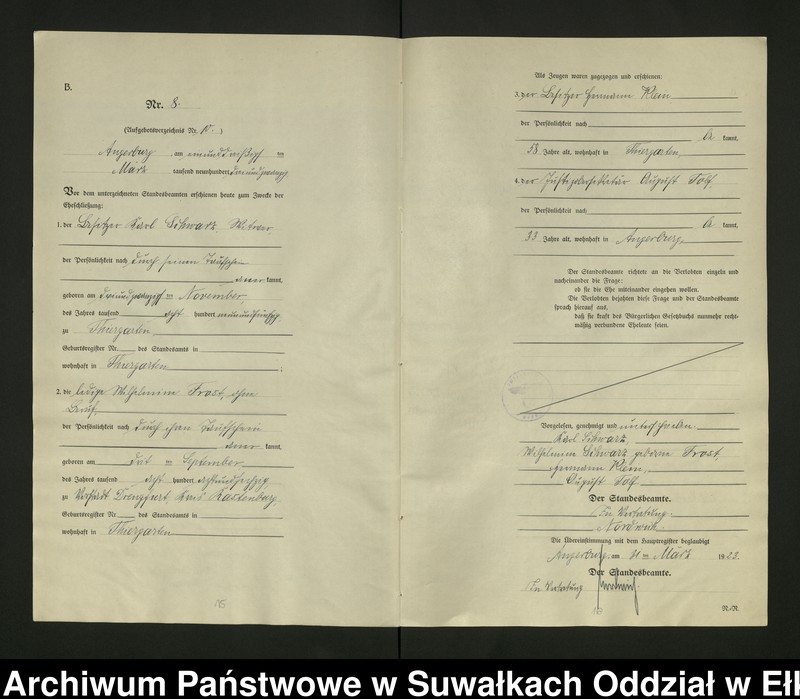 B.
Nr. 8.
(Aufgebotsverzeichnis Nr. )
Angerburg am einunddreißigsten
März tausend neunhundert dreiundzwanzig
Vor dem unterzeichneten Standesbeamten erschienen heute zum Zwecke der
Eheschließung:
1. der Besitzer Karl Schwarz, Witwer,
der Persönlichkeit nach durch seinen Taufschein
anerkannt,
geboren am dreiundzwanzigsten November
des Jahres tausend acht hundert
zu Thiergarten
Geburtsregister Nr. des Standesamts in
wohnhaft in Thiergarten ;
2. die ledige Wilhelmine Frost, ohne
Beruf,
der Persönlichkeit nach durch ihren Taufschein
anerkannt,
geboren am September
des Jahres tausend acht hundert achtundsechzig
zu Vorstadt Drengfurt, Kreis Rastenburg,
Geburtsregister Nr. des Standesamts in
wohnhaft in Thiergarten
Als Zeugen waren zugezogen und erschienen:
3. der Besitzer Hermann Klein
der Persönlichkeit nach
kannt,
58 Jahre alt, wohnhaft in Thiergarten,
4. der Justizobersekretär August
der Persönlichkeit nach
kannt,
33 Jahre alt, wohnhaft in Angerburg,
Der Standesbeamte richtete an die Verlobten einzeln und
nacheinander die Frage:
ob sie die Ehe miteinander eingehen wollen.
Die Verlobten bejahten diese Frage und der Standesbeamte
sprach hierauf aus,
daß sie kraft des Bürgerlichen Gesetzbuchs nunmehr recht-
mäßig verbundene Eheleute seien.
Vorgelesen, genehmigt und unterschrieben
Karl Schwarz,
Wilhelmine Schwarz geborene Frost,
Hermann Klein,
August
Der Standesbeamte.
In Vertretung.
Die Übereinstimmung mit dem Hauptregister beglaubigt
Angerburg, am 31 ten März 1923.
Der Standesbeamte.
In Vertretung
Archiwum Państwowe w Suwałkach Oddział w Ełk